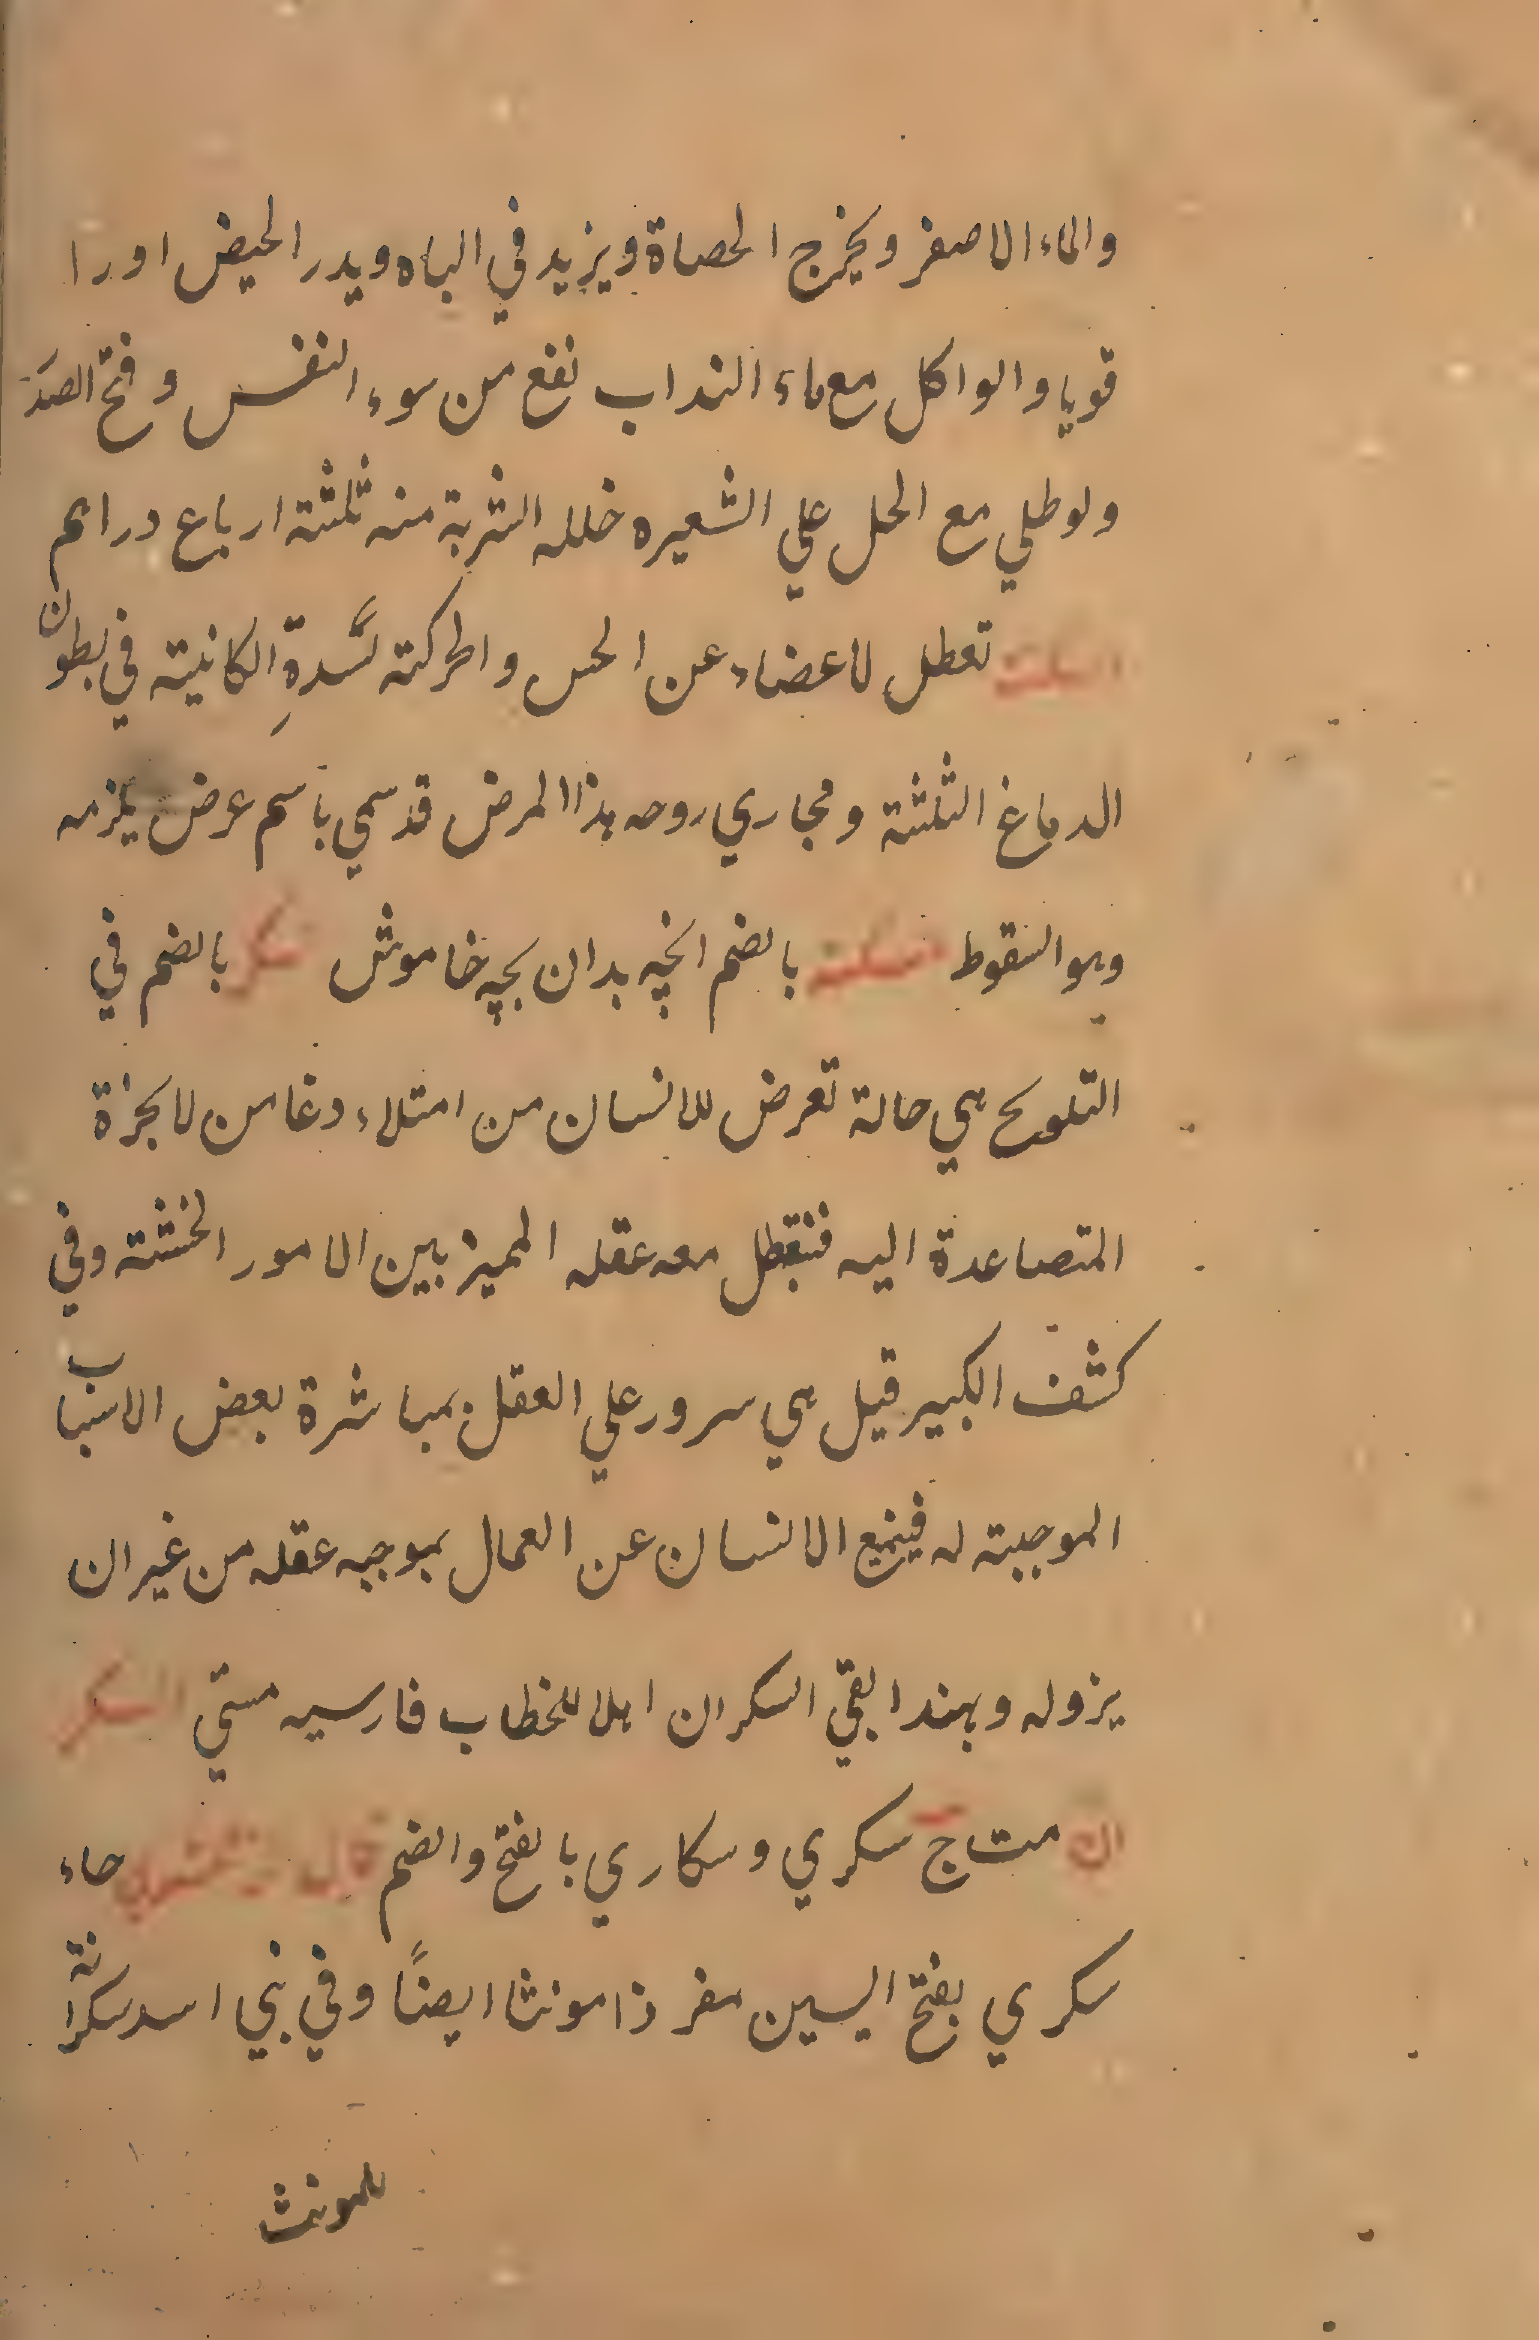 والماء الاصفر ويخرج الحصاة ويزيد في الباه ويدر الحيض اورا
قويا والو اكل مع ماء النداب نفع من سوء النفس وفتح الصد
ولو طلي مع الحل علي الشعيره خلله الشربة منه ثلثة ارباع دراهم
السكتة تعطل لاعضاء عن الحس والحركته لسدة الكانيته في بطون
الدماغ الثلثة ومجاري روحه هذا المرض قد سمي باسم عرض يلزمه
وهو السقوط سكته بالضم انچه بدان بچه خاموش سكر بالضم في
التلويح هي حالة تعرض للانسان من امتلاء دغا من لابخرة
المتصاعدة اليه فتعطل معه عقله المميز بين الامور الخشنة وفي
كشف الكبير قيل هي سرور علي العقل بمباشرة بعض الاسباب
الموجبته له فيمنع الانسان عن العمال بموجبه عقله من غير ان
يزوله وبهذا بقي السكران اهلا للخطاب فارسيه مستي السكر
ان مست ج سكري وسكاري بالفتح والضم حاء
سكري بفتح السين مفرذا مونثا ايضًا وفي بني اسد سكرانة
للمونث